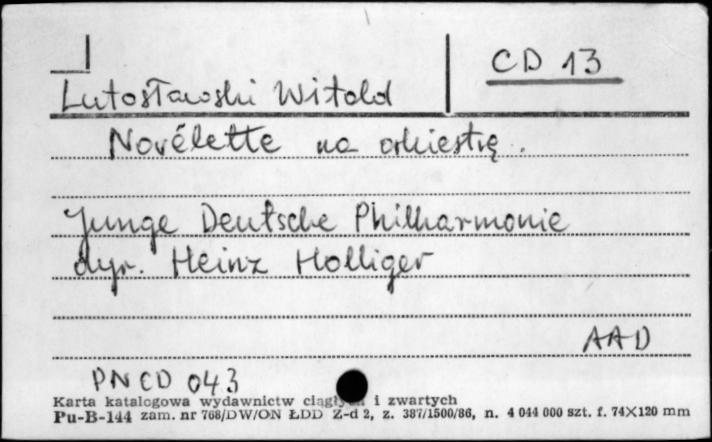 CD 13
Lutosławski Witold
Novélette na orkiestrę.
Junge Deutsche Philharmonie
dyr. Heinz Holliger
AAD
PN CD 043
Karta katalogowa wydawnictw ciągłych i zwartych
Pu-B-144 zam. nr 768/DW/ON ŁDD Z-d 2, z. 387/1500/86, n. 4 044 000 szt. f. 74×120 mm